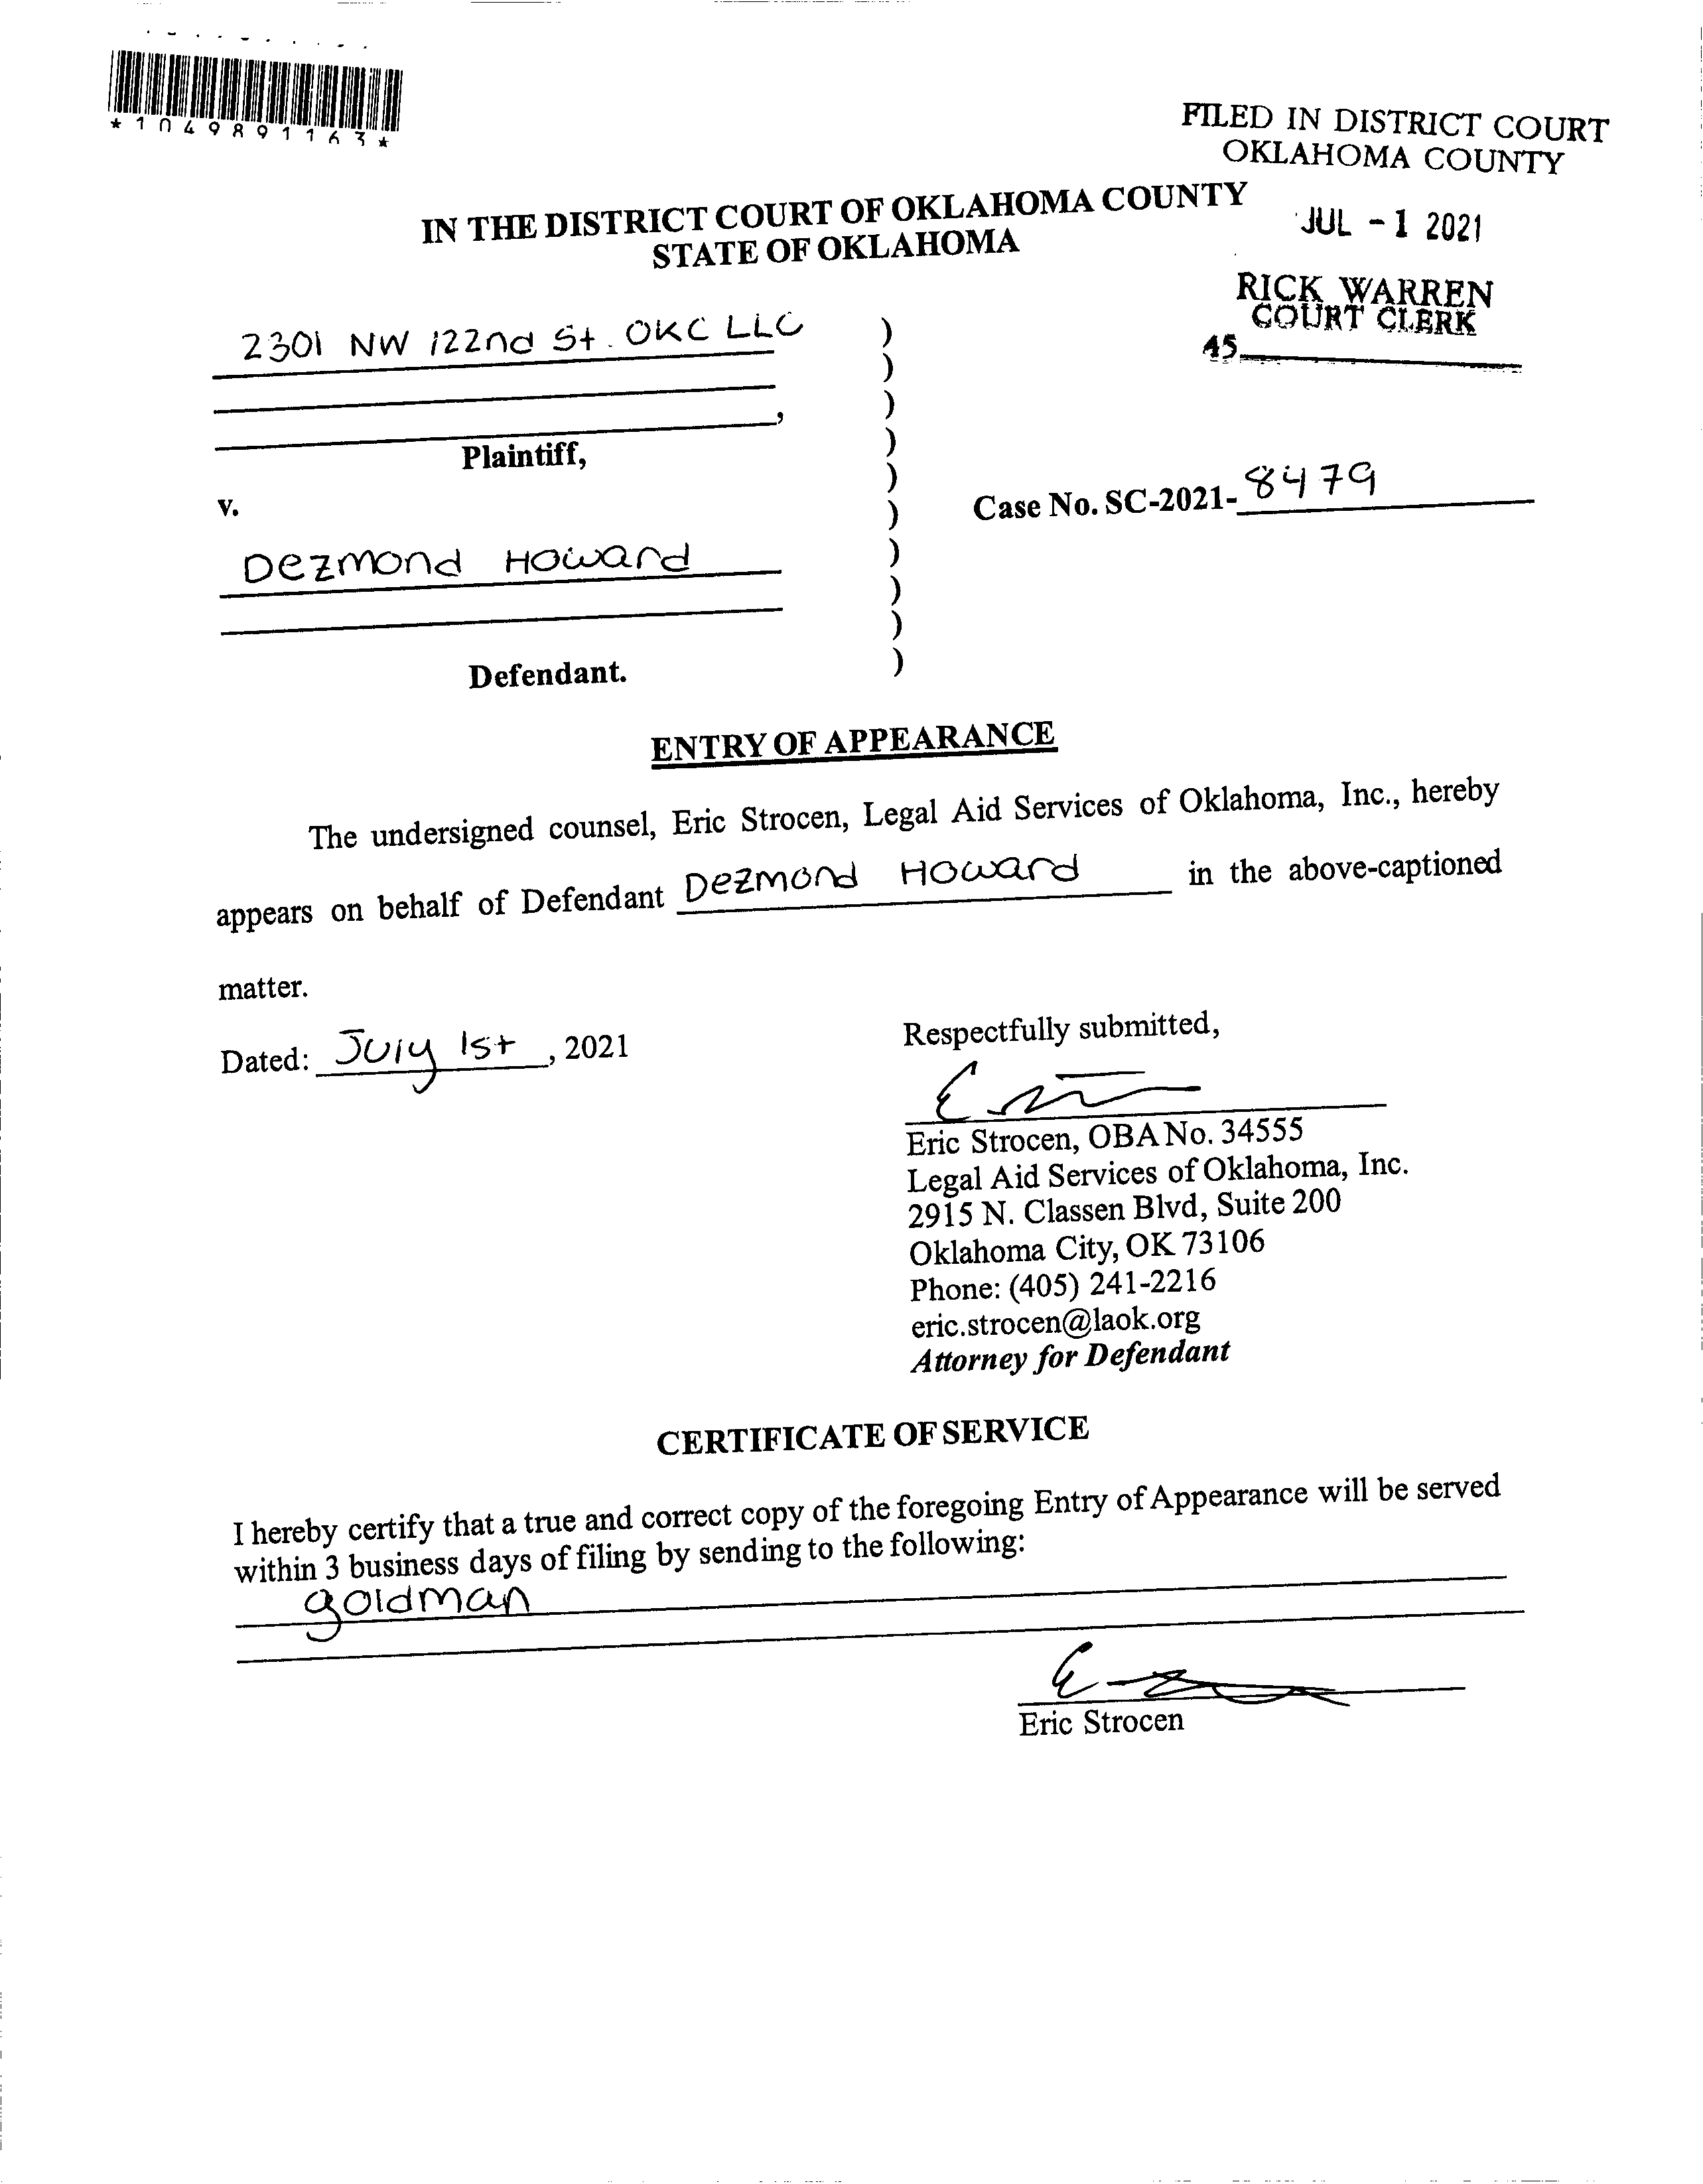 *1049891163*
FILED IN DISTRICT COURT
OKLAHOMA COUNTY
JUL - 1 2021
RICK WARREN
COURT CLERK
45
IN THE DISTRICT COURT OF OKLAHOMA COUNTY
STATE OF OKLAHOMA
2301 NW 122nd St. OKC LLC
,
Plaintiff,
v.
Case No. SC-2021-8479
Dezmond Howard
Defendant.
ENTRY OF APPEARANCE
The undersigned counsel, Eric Strocen, Legal Aid Services of Oklahoma, Inc., hereby
appears on behalf of Defendant Dezmond Howard in the above-captioned
matter.
Dated: July 1st, 2021
Respectfully submitted,
Eric Strocen, OBA No. 34555
Legal Aid Services of Oklahoma, Inc.
2915 N. Classen Blvd, Suite 200
Oklahoma City, OK 73106
Phone: (405) 241-2216
eric.strocen@laok.org
Attorney for Defendant
CERTIFICATE OF SERVICE
I hereby certify that a true and correct copy of the foregoing Entry of Appearance will be served
within 3 business days of filing by sending to the following:
goldman
Eric Strocen